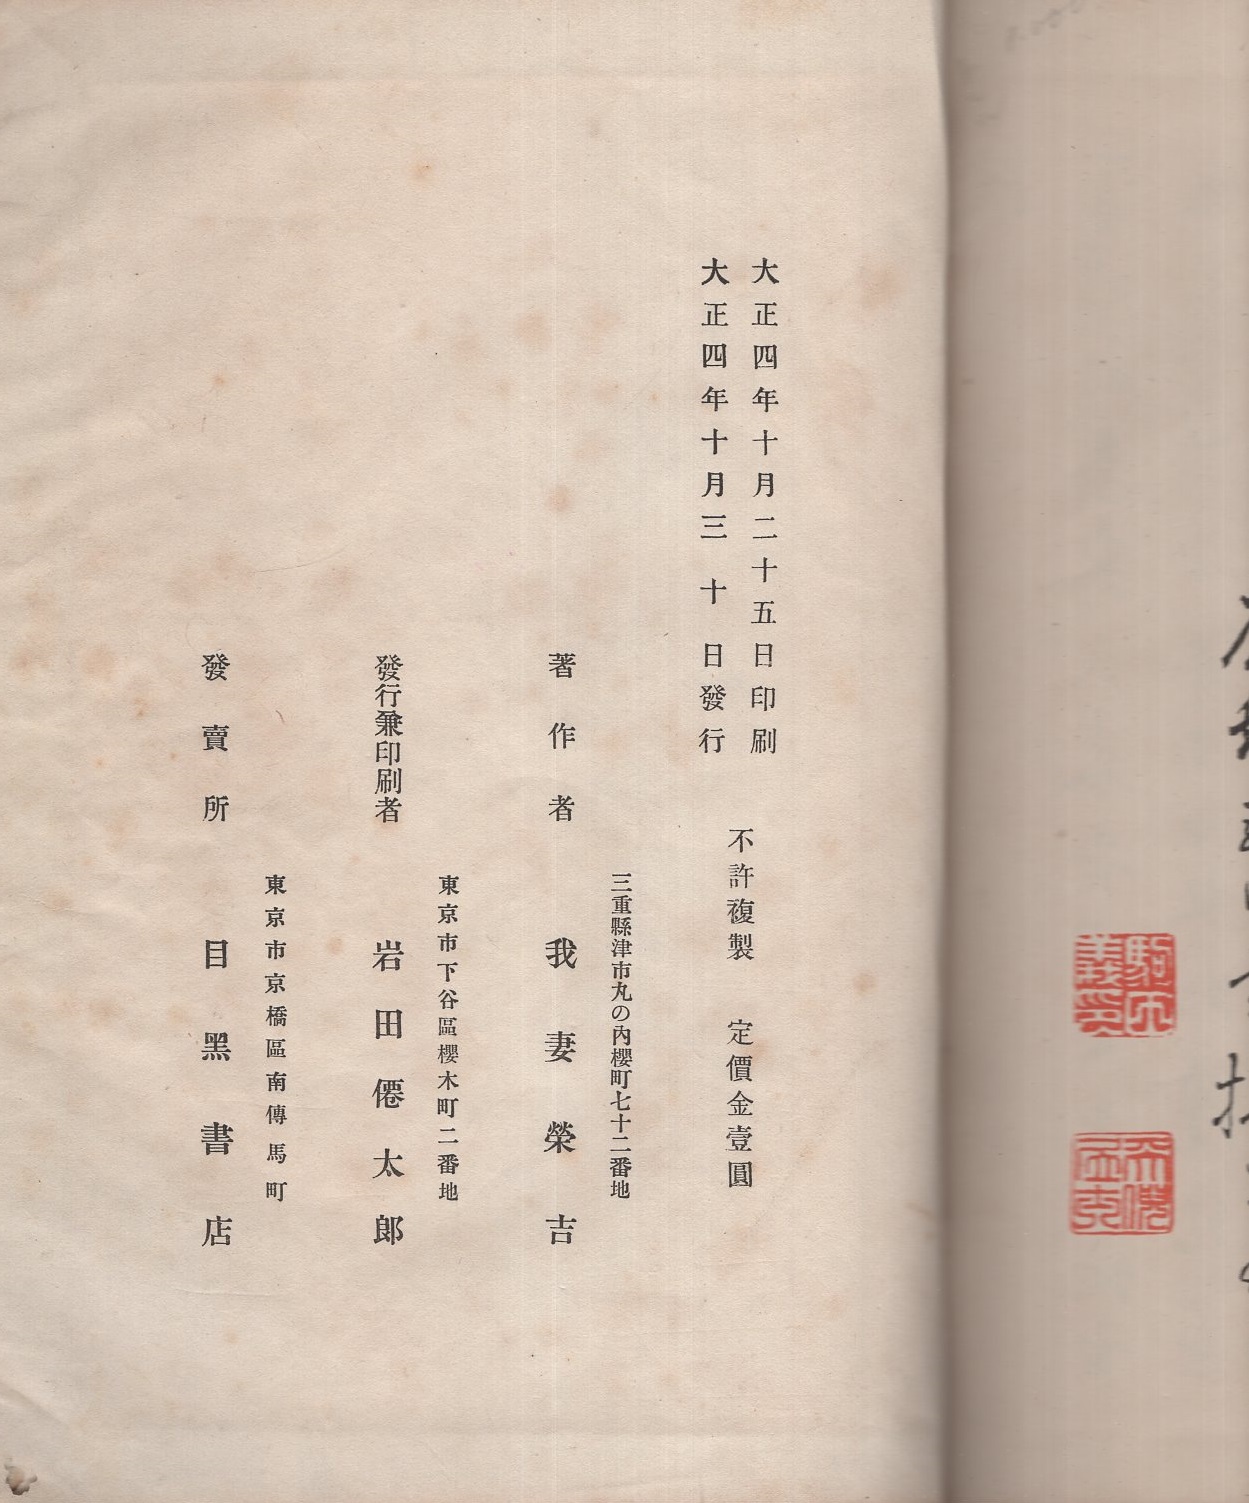 大正四年十月二十五日印刷
大正四年十月三十日發行
不許複製 定價金壹圓
三重縣津市丸の內櫻町七十二番地
著作者 我妻榮吉
東京市下谷區櫻木町二番地
發行兼印刷者 岩田僊太郎
東京市京橋區南傳馬町
發賣所 目黑書店